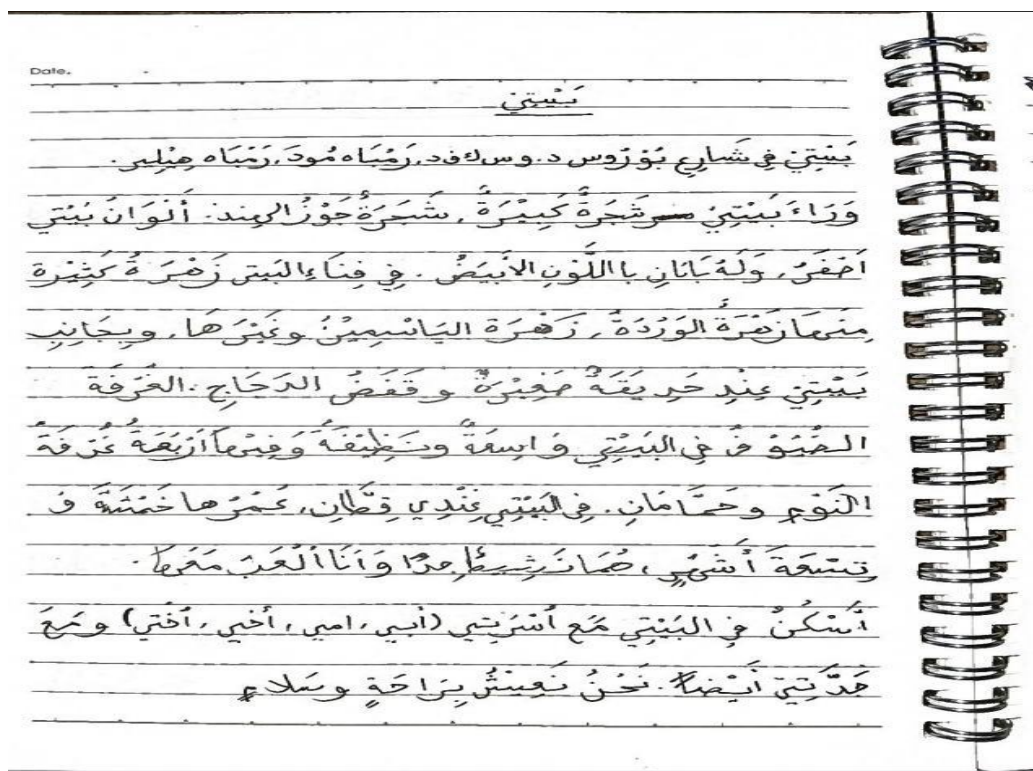 Date.
بَيْتِيْ
بَيْتِيْ فِي شَارِعِ بُوْرُوس د.و س ك ف د، رَمْبَاه مُودَ، رَمْبَاه هِيْلِير.
وَرَاءَ بَيْتِيْ شَجَرَةٌ كَبِيْرَةٌ، شَجَرَةُ جَوْزُ الهِند. أَلْوَانُ بَيْتِي
أَخْفَرُ، وَلَهُ بَابَانِ بااللَّوْنِ الأَبْيَضُ. فِي فِنَاءِ البَيتِ زَهْرَةُ كَثِيْرَة
مِنهَا زَهْرَةُ الوَرْدَةُ، زَهْرَة اليَاسْمِيْنُ وغَيْرَهَا. وبِجَانِبِ
بَيْتِيْ عِنْدِ حَدِيقَةٌ صَغِيْرَةٌ و قَفَصُ الدَجَاجِ. الغُرْفَة
الضُيُوْفُ فِي البَيْتِي وَاسِعَةٌ ونَظِيْفَةٌ وَفِيْهَا أَرْبَعَةُ غُرْفَةُ
النَوْمِ وحَمَّامَانِ. فِي البَيْتِي عِنْدِي قِطَّانِ، عُمْرُها خَمْسَةُ وَ
تِسْعَةَ أَشْهُرٍ، هُمَا نَشِيطٌ جِدًا وَأَنَا أَلْعَبُ مَعَهَا.
أَسْكُنُ فِي البَيْتِي مَع أُسْرَتِي (أبي، امي، أخي، أختي) ومَعَ
جَدَّتِيْ أَيْضًا. نَحْنُ نَعِيْشُ بِرَاحَةٍ وسَلَامٍ